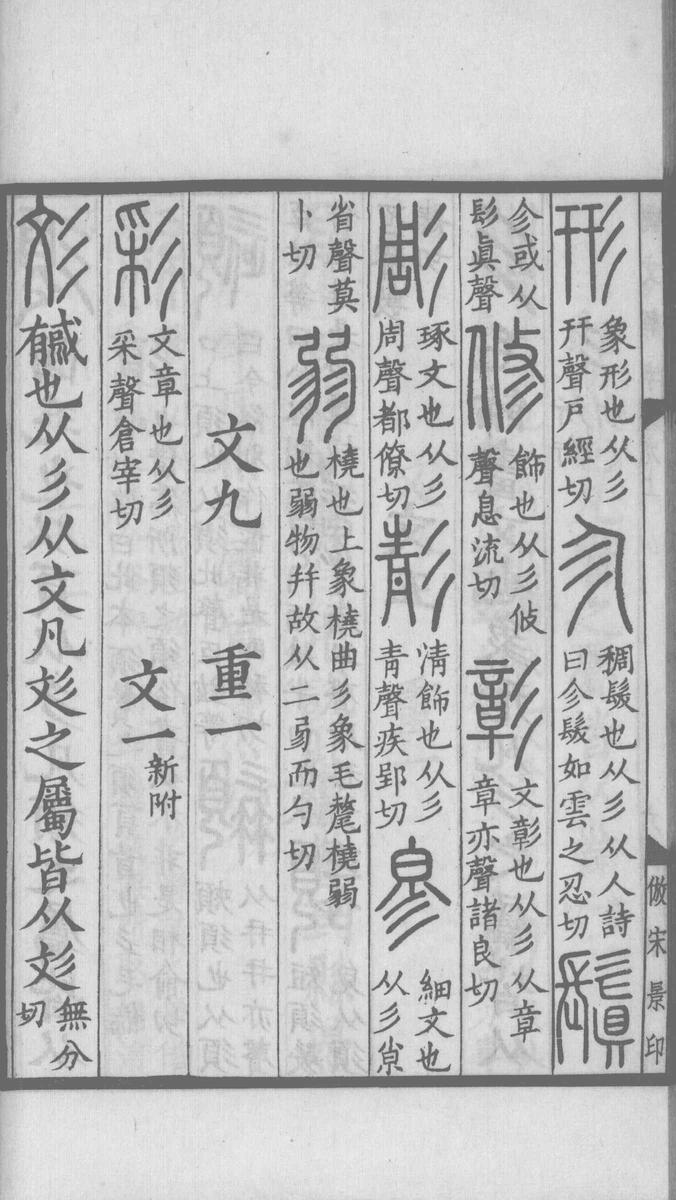 形 象形也从彡幵聲戸經切 㐱 稠髮也从彡从人詩曰㐱髮如雲之忍切 鬒
㐱或从髟眞聲 修 飾也从彡攸聲息流切 彰 文彰也从彡从章章亦聲諸良切
彫 琢文也从彡周聲都僚切 彭 淸飾也从彡靑聲疾郢切 㣎 細文也从彡𡭴
省聲莫卜切 弱 橈也上象橈曲彡象毛氂橈弱也弱物并故从二㢱而勺切
文九 重一
彩 文章也从彡采聲倉宰切 文一 新附
彣 𢒈也从彡从文凡彣之屬皆从彣 無分切
倣宋景印